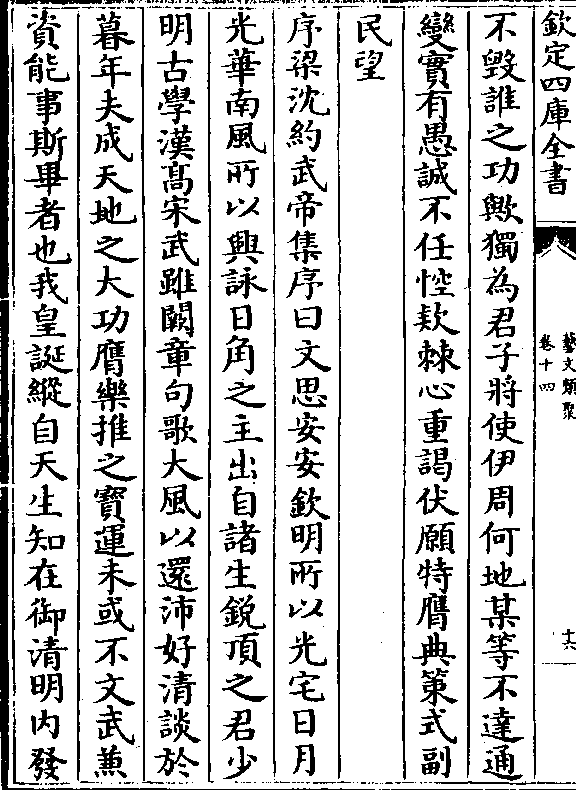 欽定四庫全書
藝文類聚
卷十四
十六
不毀誰之功歟獨為君子將使伊周何地某等不達通
變實有愚誠不任悾款棘心重謁伏願特膺典策式副
民望
序梁沈約武帝集序曰文思安安欽明所以光宅日月
光華南風所以興詠日角之主出自諸生鋭頂之君少
明古學漢髙宋武雖闕章句歌大風以還沛好清談於
暮年夫成天地之大功膺樂推之寶運未或不文武兼
資能事斯畢者也我皇誕縱自天生知在御清明内發